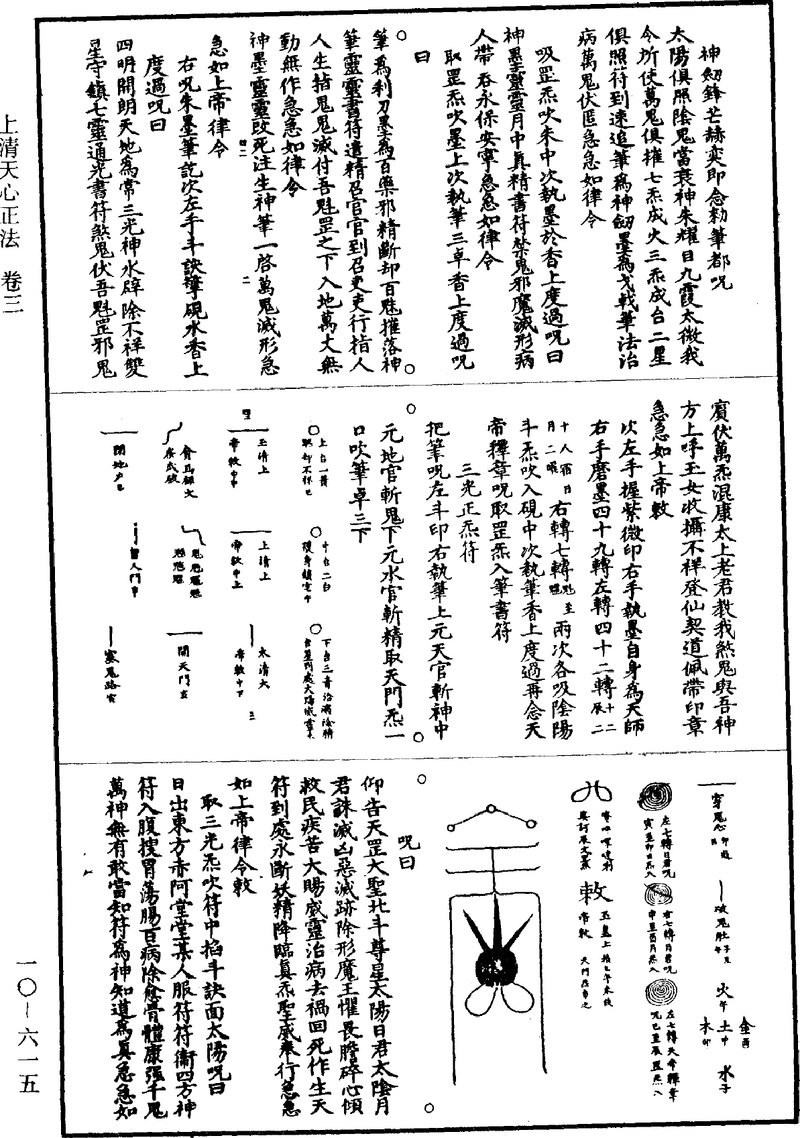 神劒鋒芒赫奕即念勑筆都呪
太陽俱照陰鬼當衰神朱耀日九霞太微我
令所使萬鬼俱摧七炁成火三炁成台二星
俱照符到速追筆為神劒墨為戈戟筆法治
病萬鬼伏匿急急如律令
吸罡炁吹朱中次執墨於香上度過呪曰
神墨靈靈月中真精書符禁鬼邪魔滅形病
人帶吞永保安寧急急如律令
取罡炁吹墨上次執筆三卓香上度過呪
曰
筆為利刃墨為百藥邪精斷却百魅摧落神
筆靈靈書符遣精召官官到召吏吏行指人
人生指鬼鬼滅付吾魁罡之下入地萬丈無
動無作急急如律令
神墨靈靈改死注生神筆一啓萬鬼滅形急
急如上帝律令
右呪朱墨筆訖次左手斗訣擎硯水香上
度過呪曰
四明開朗天地為常三光神水辟除不祥雙
星守鎮七靈通光書符煞鬼伏吾魁罡邪鬼
賓伏萬炁混康太上老君教我煞鬼與吾神
方上呼玉女收攝不祥登仙契道佩帶印章
急急如上帝敕
次左手握紫微印右手執墨自身為天師
右手磨墨四十九轉左轉四十二轉
右轉七轉 至 兩次各吸陰陽
斗炁吹入硯中次執筆香上度過再念天
帝釋章呪取罡炁入筆書符
三光正炁符
把筆呪左斗印右執筆上元天官斬神中
元地官斬鬼下元水官斬精取天門炁一
口吹筆卓三下
上台一黃
中台二白
護身鎮宅
下台三青
玉清上
帝敕
上清上
帝敕
太清大
帝敕
閉地戶
留人門
開天門
塞鬼路
穿鬼心
破鬼肚
火午
土中
水子
金酉
木卯
左七轉日君呪
右七轉月君呪
左七轉天帝釋章
敕
呪曰
仰告天罡大聖北斗尊星太陽日君太陰月
君誅滅凶惡滅跡除形魔王懼畏膽碎心傾
救民疾苦大賜威靈治病去禍回死作生天
符到處永斷妖精降臨真炁聖威奉行急急
如上帝律令敕
取三光炁吹符中掐斗訣面太陽呪曰
日出東方赤阿堂堂某人服符符衛四方神
符入腹搜胃蕩腸百病除愈骨體康强千鬼
萬神無有敢當知符為神知道為真急急如
上清天心正法 卷三
一〇—六一五